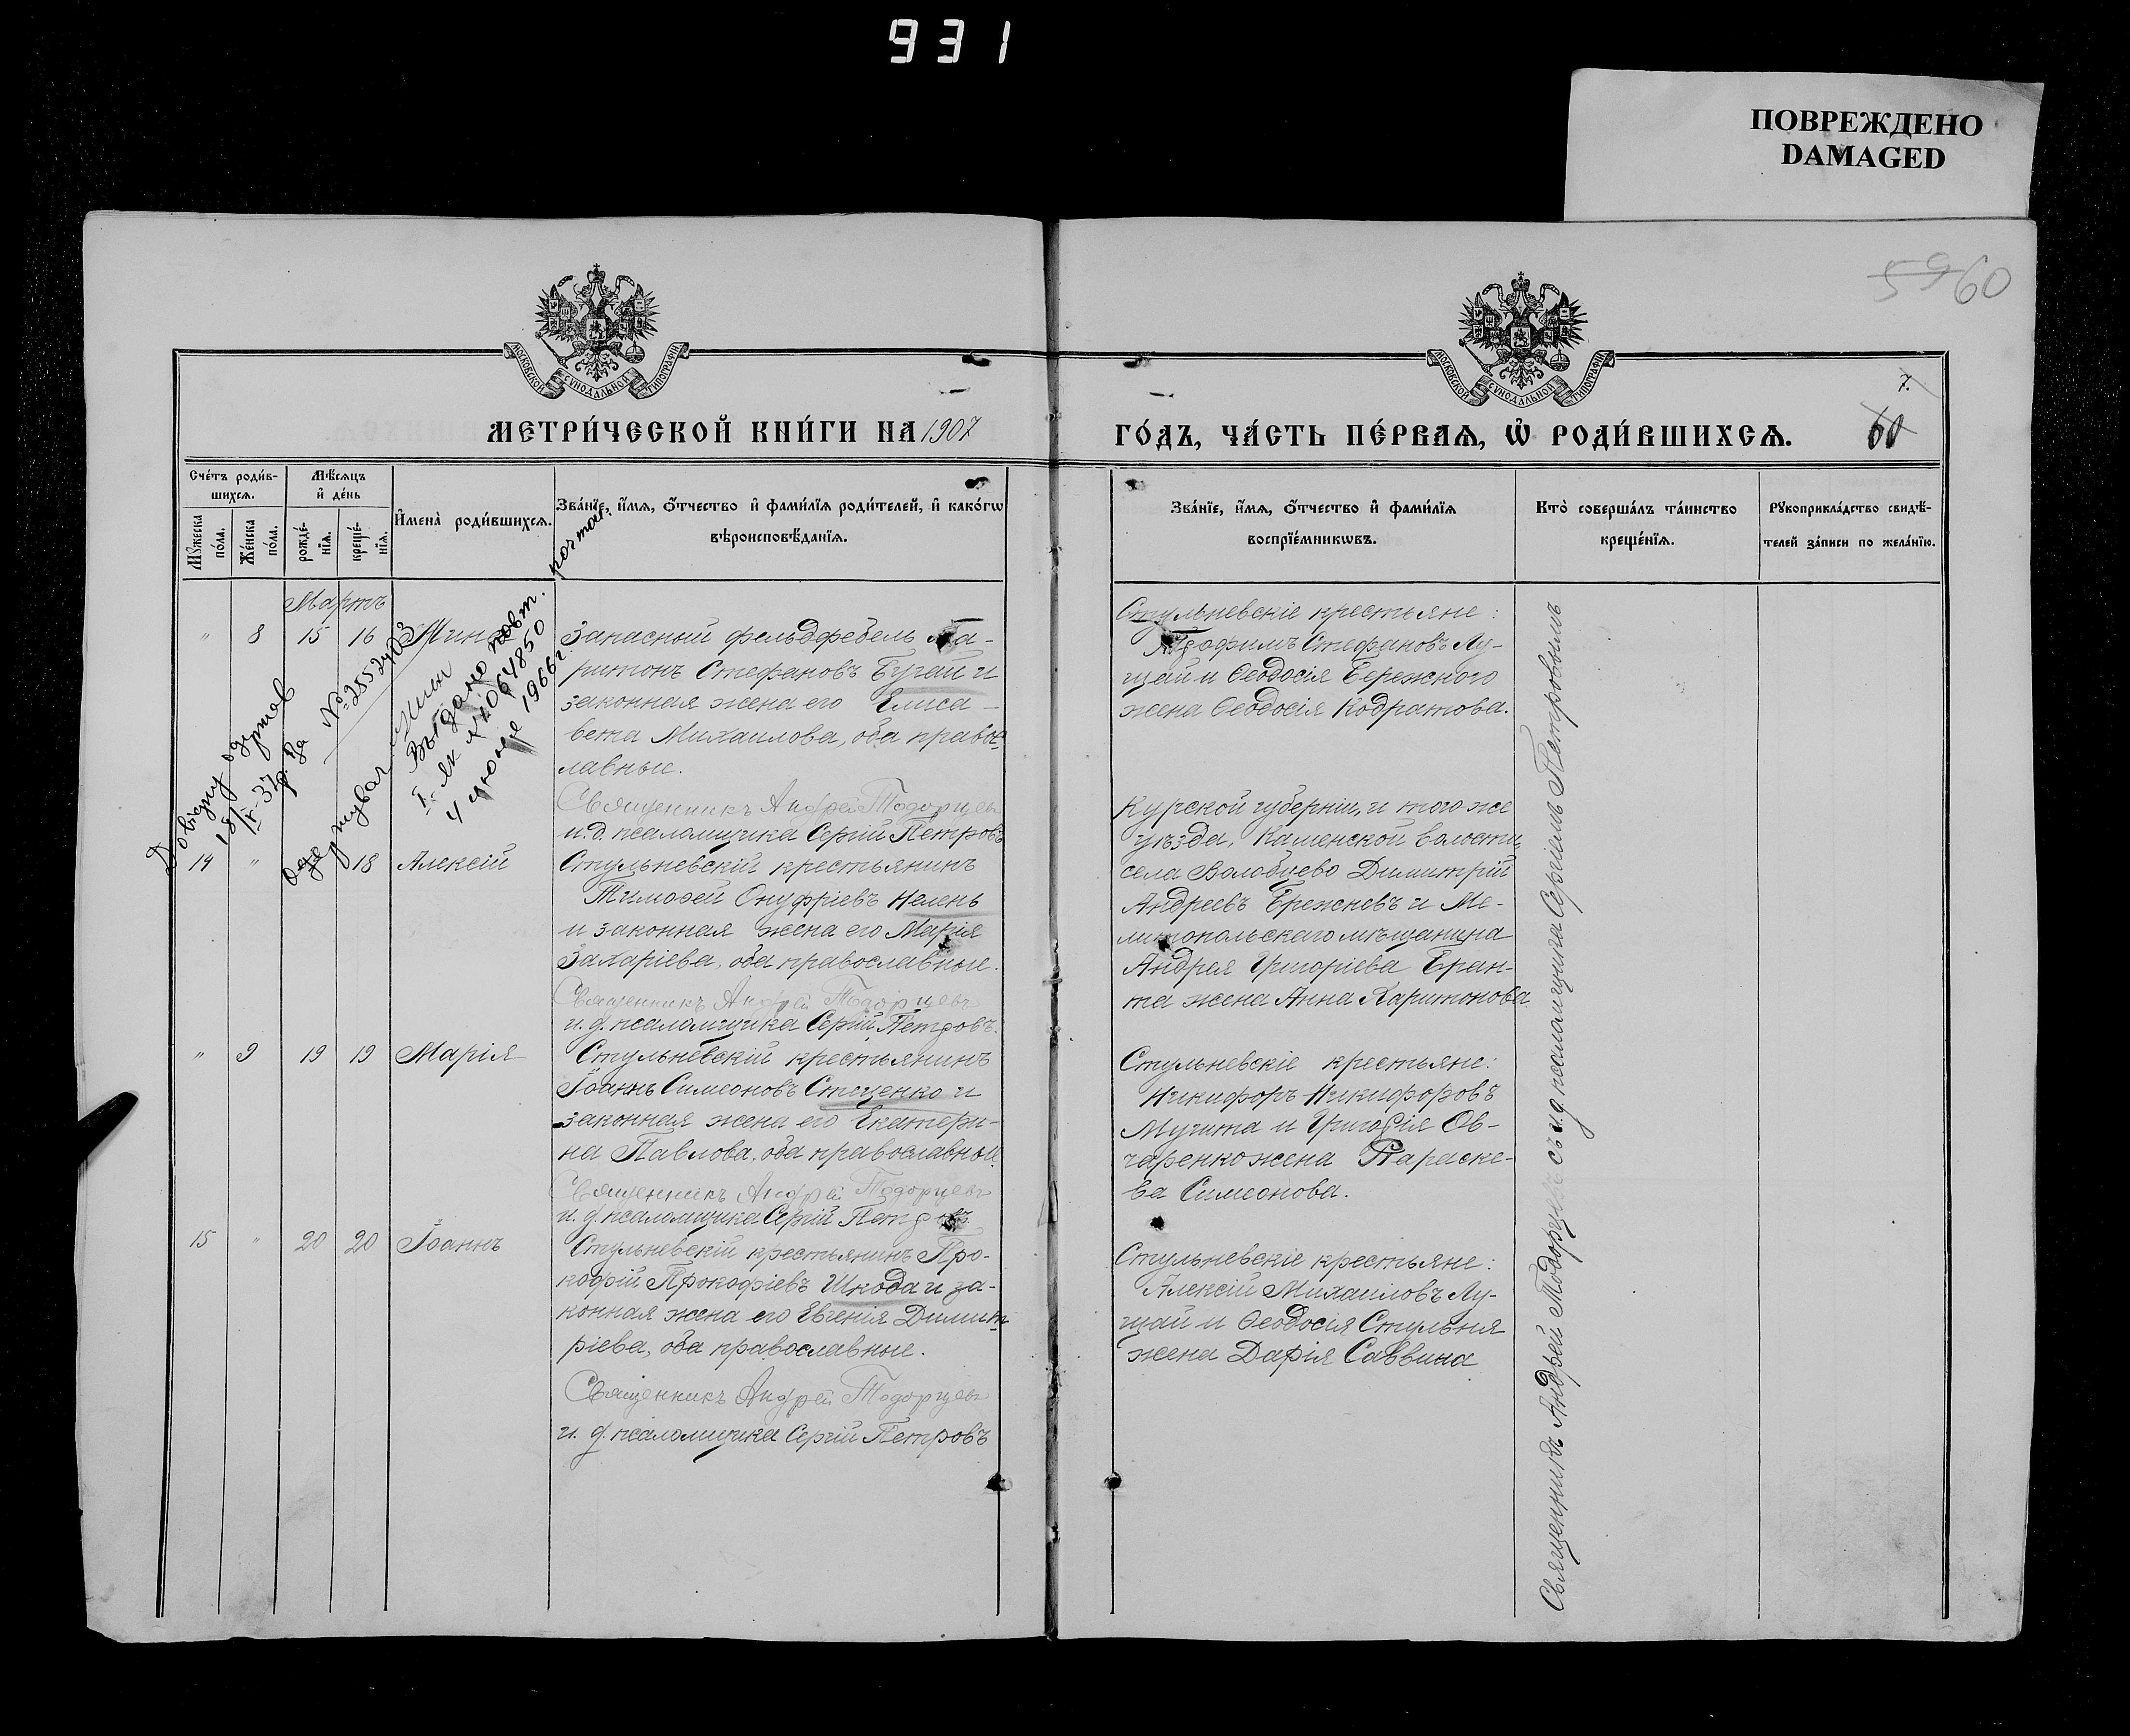 931
ПОВРЕЖДЕНО
DAMAGED
59 60
МОСКОВСКОЙ СѴНОДАЛЬНОЙ ТИПОГРАФІИ
МОСКОВСКОЙ СѴНОДАЛЬНОЙ ТИПОГРАФІИ
7.
60
МЕТРИ́ЧЕСКОЙ КНИ́ГИ НА 1907
ГО́ДЪ, ЧА́СТЬ ПЕ́РВАѦ, Ѽ РОДИ́ВШИХСѦ.
Сче́тъ роди́в-
шихсѧ.
Мꙋжеска
по́ла.
Же́нска
по́ла.
Мѣ́сѧцъ
и҆ де́нь
рожде́-
нїѧ.
креще́-
нїѧ.
И҆мена̀ роди́вшихсѧ.
Зва́нїе, и҆́мѧ, ѻ҆́тчество и҆ фами́лїѧ роди́телей, и҆ како́гѡ
вѣроисповѣ́данїѧ.
Зва́нїе, и҆́мѧ, ѻ҆́тчество и҆ фами́лїѧ
воспрїе́мникѡвъ.
Кто̀ соверша́лъ та́инство
креще́нїѧ.
Рꙋкоприкла́дство свидѣ́-
телей за́писи по жела́нїю.
Мартъ
" 8 15 16
Запасный фельдфебель Ха-
ритонъ Стефановъ Бугай и
законная жена его Елиса-
вета Михаилова, оба правос
лавные.
Священникъ Андрей Тодорцевъ
и.д. псаломщика Сергій Петровъ
Стульневскіе крестьяне:
Трофимъ Стефановъ Лу-
цай и Ѳеодосія Бережного
жена Ѳеодосія Кодратова.
Довідку одержав
18/IV-37 р. За № 2552403
одержував
Видано повт.
1966 г
14 " 18 Алексій
Стульневскій крестьянинъ
Тимоѳей Онуфріевъ Нелень
и законная жена его Марія
Захаріева, оба православные.
Священникъ Андрей Тодорцевъ
и.д. псаломщика Сергій Петровъ.
Курской губерніи, и того же
уѣзда, Каменской волости,
села Волобуево Димитрій
Андреевъ Брежневъ и Ме-
литопольскаго мѣщанина
Андрея Григоріева Бран-
та жена Анна Харитонова
" 9 19 19 Марія
Стульневскій крестьянинъ
Іоаннъ Симеоновъ Стеценко и
законная жена его Екатери-
на Павлова, оба православные.
Священникъ Андрей Тодорцевъ
и.д. псаломщика Сергій Петровъ
Стульневскіе крестьяне:
Никифоръ Никифоровъ
Мучита и Григорія Ов-
чаренко жена Параске-
ва Симеонова.
15 " 20 20 Іоаннъ
Стульневскій крестьянинъ Про-
кофій Прокофіевъ Шкода и за-
конная жена его Евгенія Димит
ріева, оба православные.
Священникъ Андрей Тодорцевъ
и.д. псаломщика Сергій Петровъ
Стульневскіе крестьяне:
Алексій Михаиловъ Лу-
цай и Ѳеодосія Стульня
жена Дарія Саввина
Священникъ Андрей Тодорцевъ съ и.д. псаломщика Сергіемъ Петровымъ